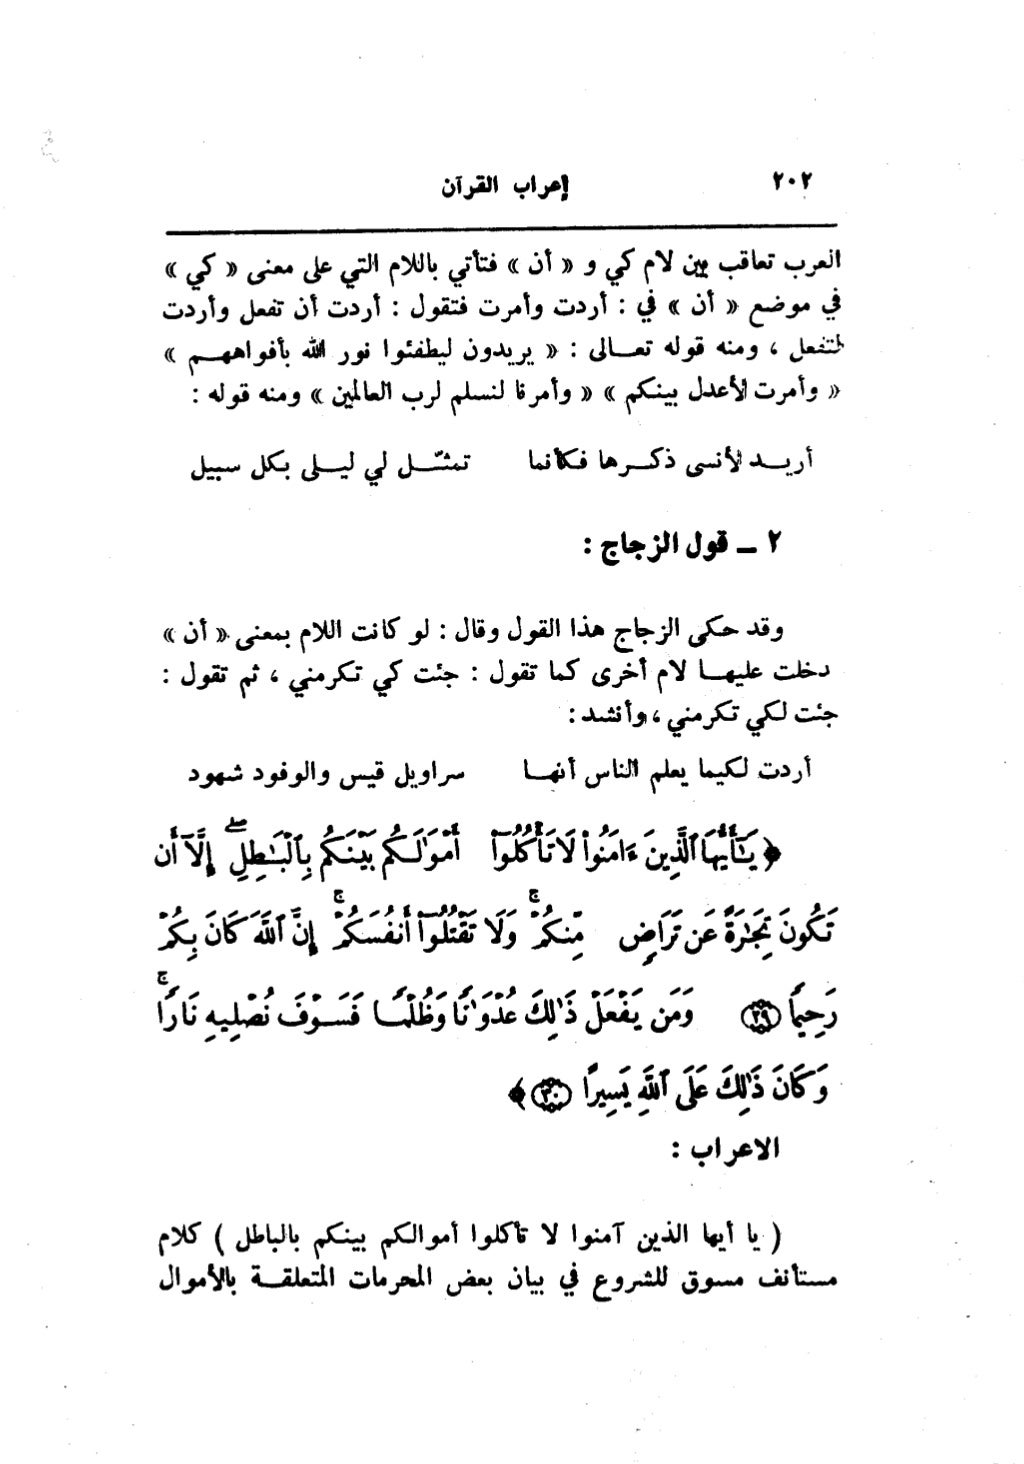 ٢٠٢
إعراب القرآن
العرب تعاقب بين لام كي و « أن » فتأتي باللام التي على معنى « كي »
في موضع « أن » في : أردت وأمرت فتقول : أردت أن تفعل وأردت
لتفعل ، ومنه قوله تعالى : « يريدون ليطفئوا نور الله بأفواههم »
« وأمرت لأعدل بينكم » « وأمرنا لنسلم لرب العالمين » ومنه قوله :
أريد لأنسى ذكرها فكأنما تمثّل لي ليلى بكل سبيل
٢ ــ قول الزجاج :
وقد حكى الزجاج هذا القول وقال : لو كانت اللام بمعنى « أن »
دخلت عليها لام أخرى كما تقول : جئت كي تكرمني ، ثم تقول :
جئت لكي تكرمني ، وأنشد :
أردت لكيما يعلم الناس أنها سراويل قيس والوفود شهود
﴿ يَـٰٓأَيُّهَا ٱلَّذِينَ ءَامَنُوا۟ لَا تَأْكُلُوٓا۟ أَمْوَٰلَكُم بَيْنَكُم بِٱلْبَـٰطِلِ ۖ إِلَّآ أَن
تَكُونَ تِجَـٰرَةً عَن تَرَاضٍ مِّنكُمْ ۚ وَلَا تَقْتُلُوٓا۟ أَنفُسَكُمْ ۚ إِنَّ ٱللَّهَ كَانَ بِكُمْ
رَحِيمًا ٢٩ وَمَن يَفْعَلْ ذَٰلِكَ عُدْوَٰنًا وَظُلْمًا فَسَوْفَ نُصْلِيهِ نَارًا ۚ
وَكَانَ ذَٰلِكَ عَلَى ٱللَّهِ يَسِيرًا ٣٠ ﴾
الاعراب :
( يا أيها الذين آمنوا لا تأكلوا أموالكم بينكم بالباطل ) كلام
مستأنف مسوق للشروع في بيان بعض المحرمات المتعلقة بالأموال